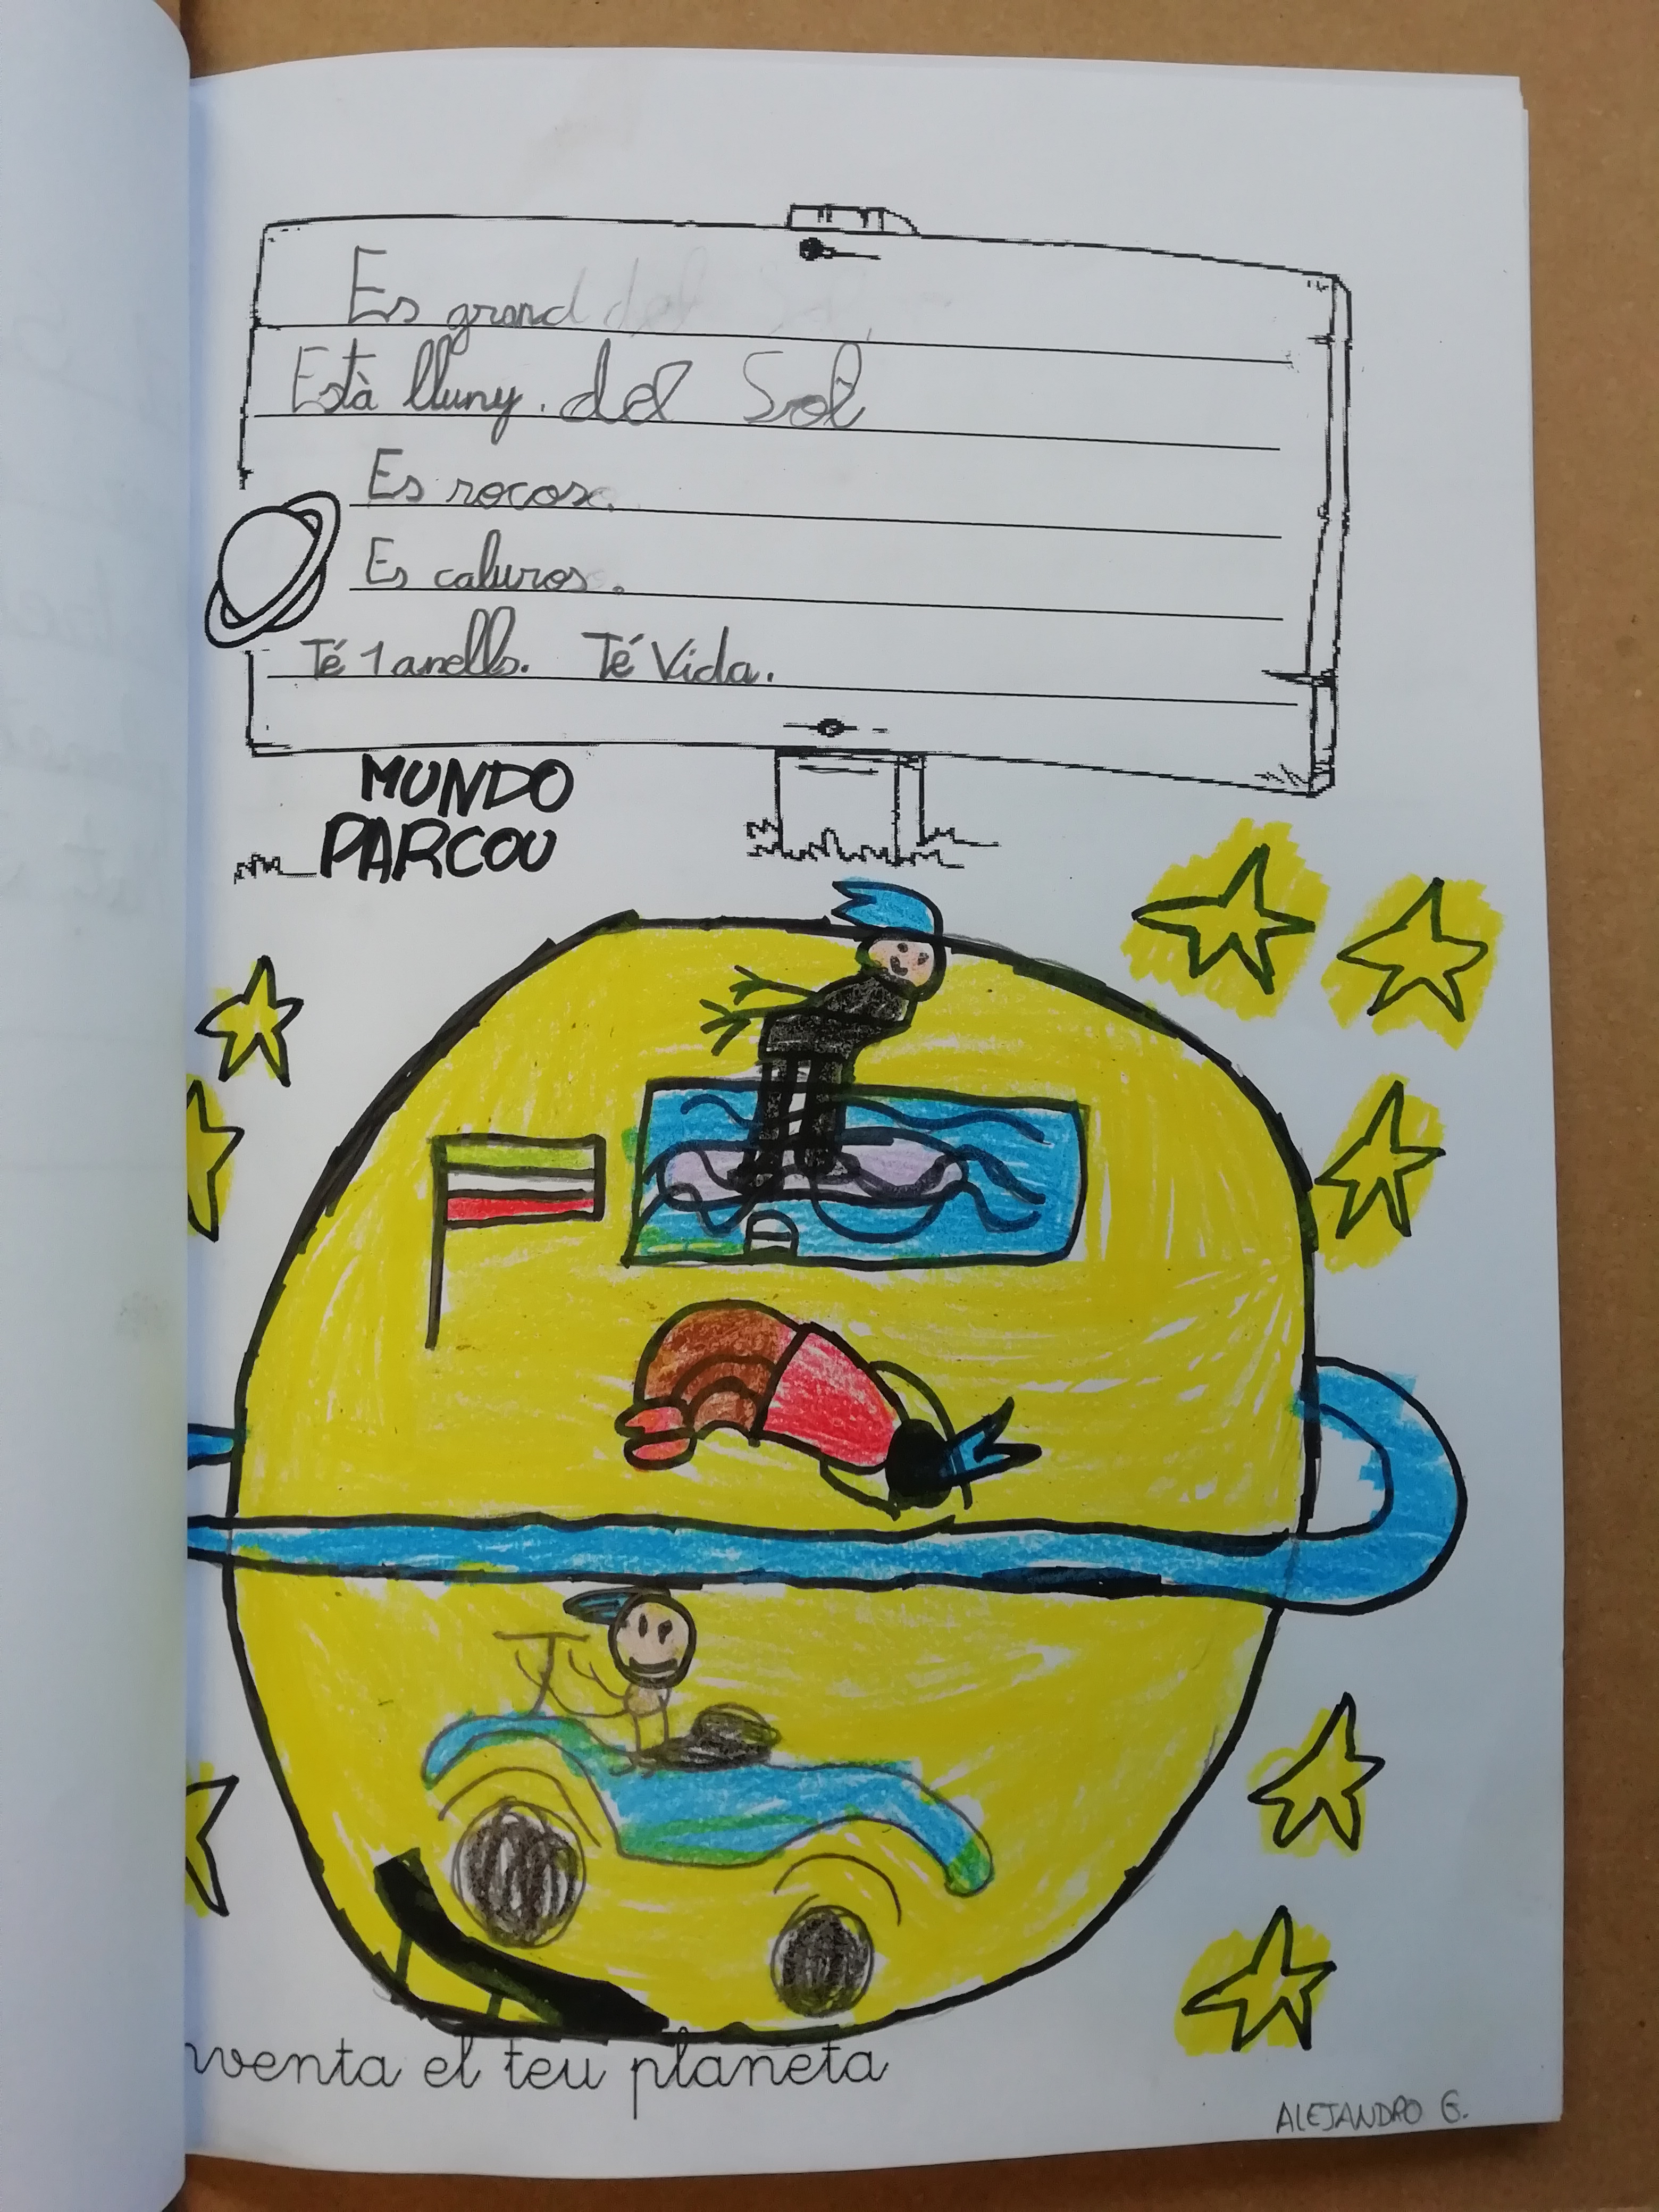 Es grand
Està lluny. del Sol
Es rocos.
Es caluros.
Té 1 anells. Té Vida.
MUNDO
PARCOU
nventa el teu planeta
ALEJANDRO G.